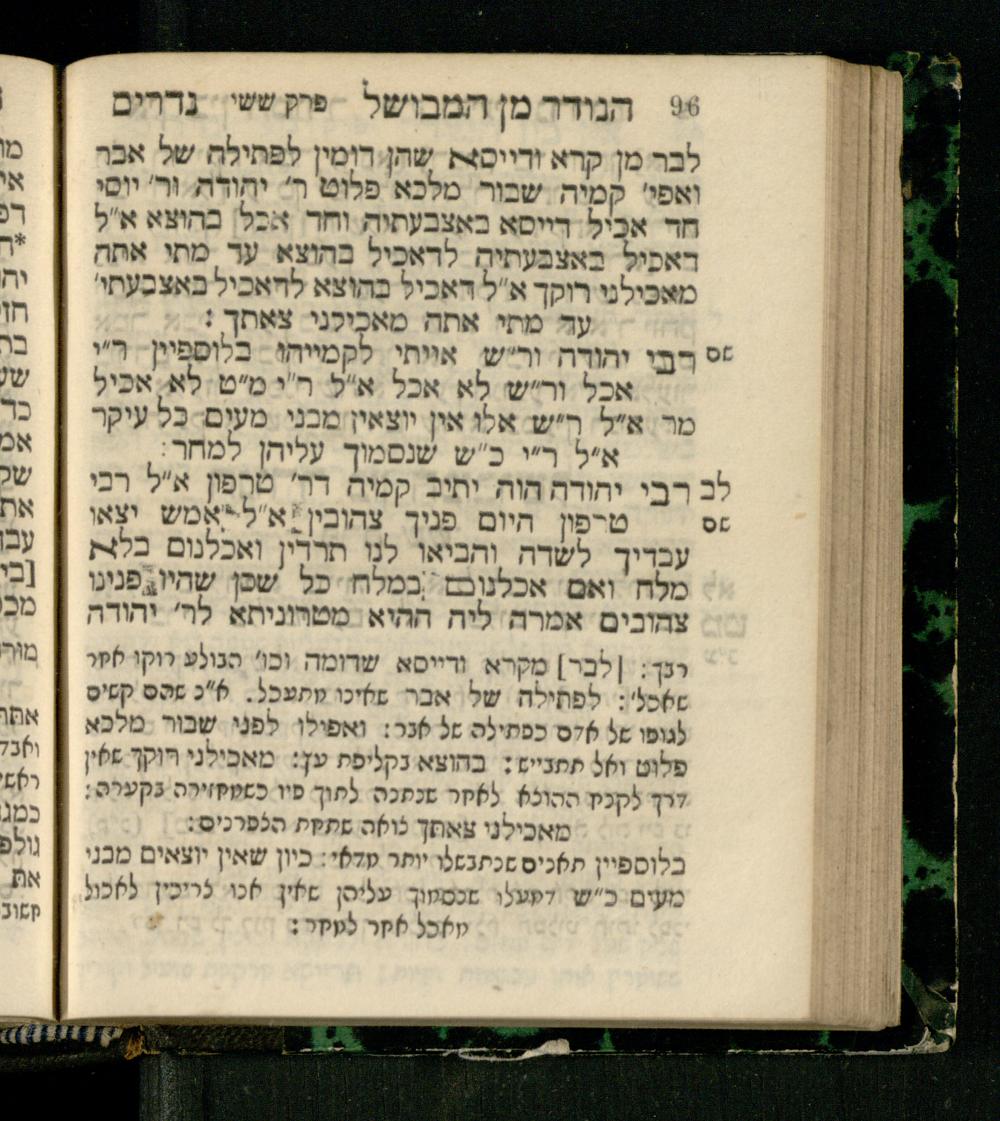 96 הנודר מן המבושל פרק ששי נדרים
לבר מן קרא ודייסא שהן דומין לפתילה של אבר
ואפי' קמיה שבור מלכא פלוט ר' יהודה ור' יוסי
חד אכיל דייסא באצבעתיה וחד אכל בהוצא א"ל
דאכיל באצבעתיה לדאכיל בהוצא עד מתי אתה
מאכילני רוקך א"ל דאכיל בהוצא לדאכיל באצבעתי'
עד מתי אתה מאכילני צאתך :
שם רבי יהודה ור"ש אייתי לקמייהו בלוספיין ר"י
אכל ור"ש לא אכל א"ל ר"י מ"ט לא אכיל
מר א"ל ר"ש אלו אין יוצאין מבני מעים כל עיקר
א"ל ר"י כ"ש שנסמוך עליהן למחר :
לב רבי יהודה הוה יתיב קמיה דר' טרפון א"ל רבי
שם טרפון היום פניך צהובין א"ל אמש יצאו
עבדיך לשדה והביאו לנו תרדין ואכלנום בלא
מלח ואם אכלנום במלח כל שכן שהיו פנינו
צהובים אמרה ליה ההיא מטרוניתא לר' יהודה
רבך : [לבר] מקרא ודייסא שדומה וכו' הבולע רוקו אחר
שאכל' : לפתילה של אבר שאינו מתעכל . א"כ שהם קשים
לגופו של אדם כפתילה של אבר : ואפילו לפני שבור מלכא
פלוט ואל תתבייש : בהוצא בקליפת עץ : מאכילני רוקך שאין
דרך לקנח ההוצא לאחר שנתנה לתוך פיו כשמחזירה בקערה :
מאכילני צאתך צואה שתחת הצפרנים :
בלוספיין תאנים שנתבשלו יותר מדאי : כיון שאין יוצאים מבני
מעים כ"ש דמעלו שנסמוך עליהן שאין אנו צריכין לאכול
מאכל אחר למחר :